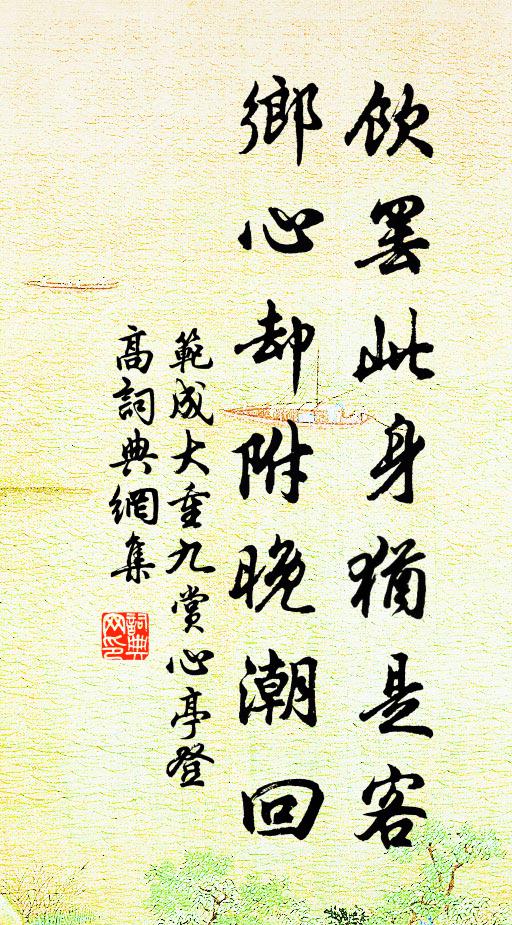 飲罷此身猶是客
鄉心却附晚潮回
範成大重九賞心亭登
高詞典網集
詞典
网印